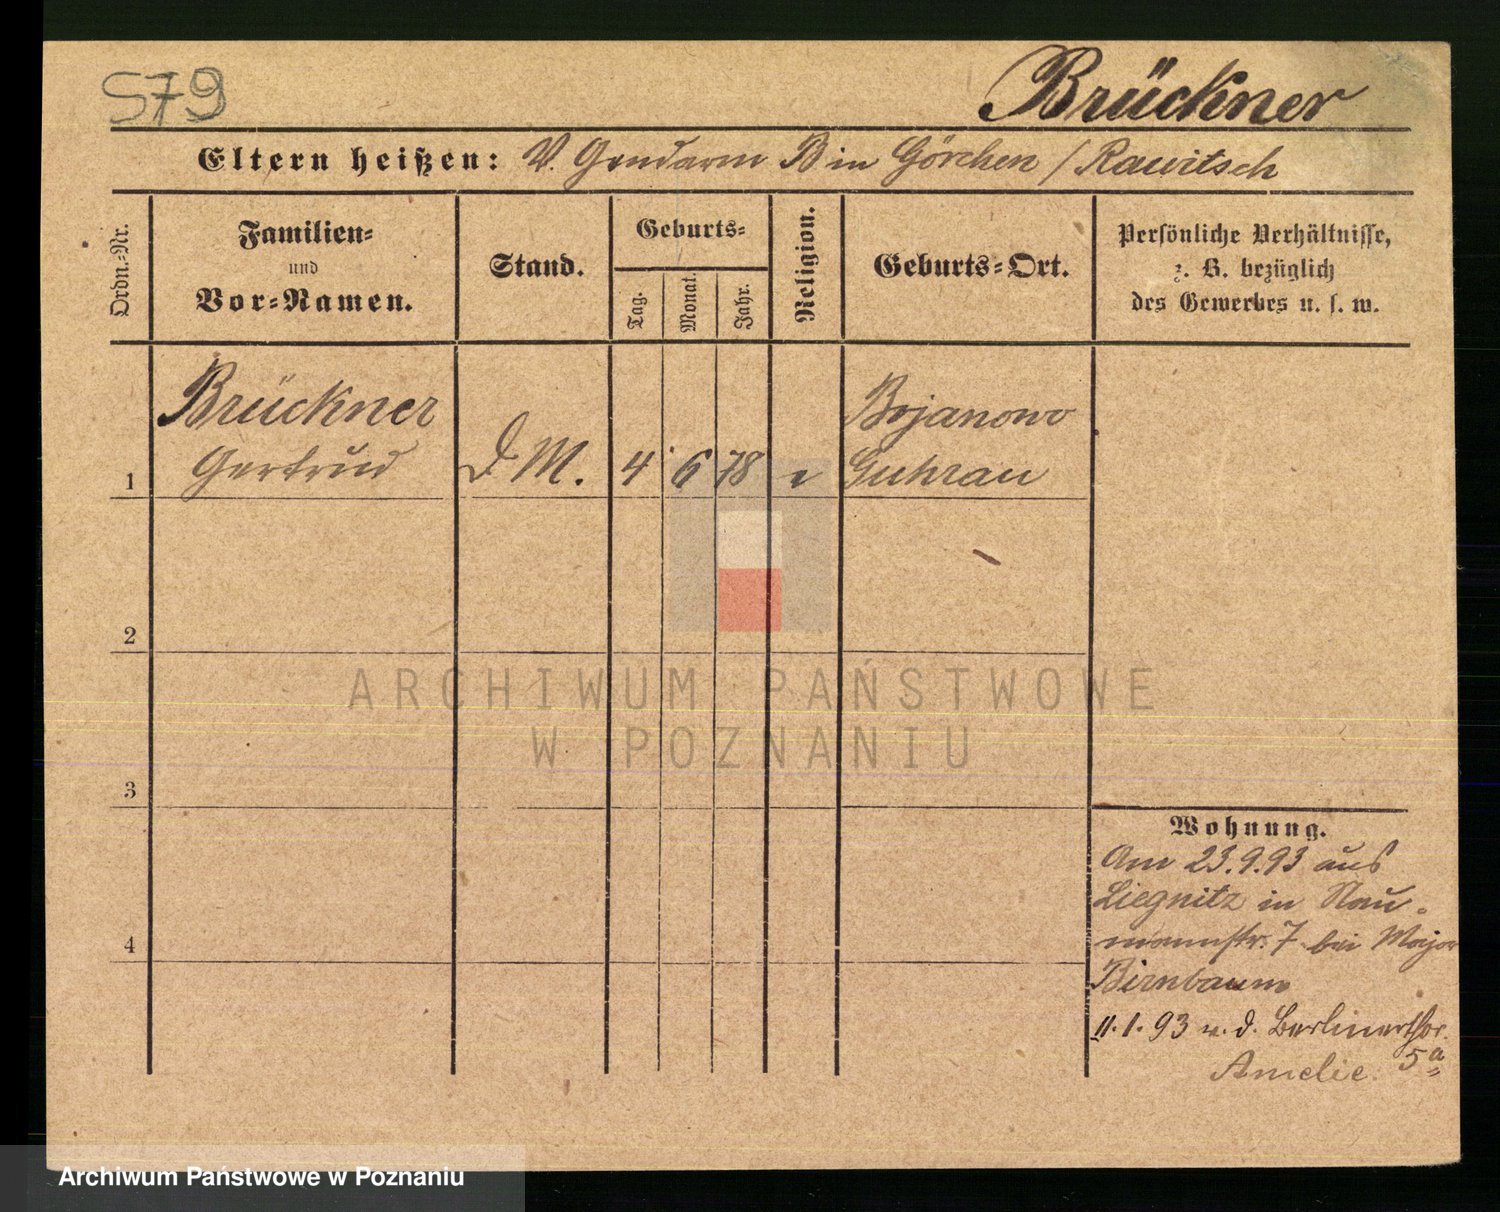 579
Brückner
Eltern heißen: V. Gendarm B in Görchen / Rawitsch
Ordn.-Nr.
Familien-
und
Vor-Namen.
Stand.
Geburts-
Tag.
Monat.
Jahr.
Religion.
Geburts-Ort.
Persönliche Verhältnisse,
z. B. bezüglich
des Gewerbes u. s. w.
Brückner
Gertrud
1
D M. 4 6 78 e
Bojanowo
Guhrau
2
3
4
Wohnung.
Am 23.9.93 aus
Liegnitz in Nau-
mannstr. 7 bei Major
Birnbaum
11.1.93 v. d. Berlinerthor
5a
Amelie.
ARCHIWUM PAŃSTWOWE
W POZNANIU
Archiwum Państwowe w Poznaniu